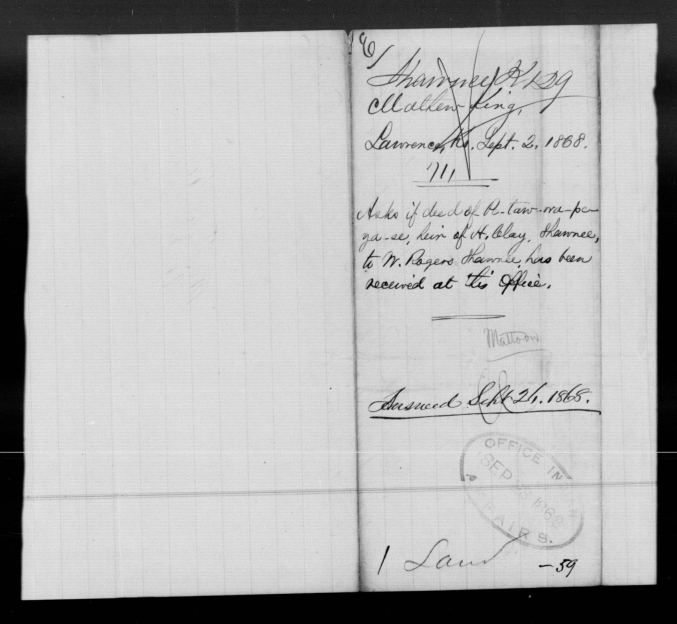 Shawnee K 129
Mathew King,
Lawrence, Ks. Sept. 2, 1868.
711
Asks if deed of
ga-se, heir of H. Clay, Shawnee,
to W. Rogers Shawnee, has been
received at this Office.
Mattoon
Answered Sept 21, 1868.
OFFICE INDIAN
SEP 1868
AFFAIRS.
1 Land -59